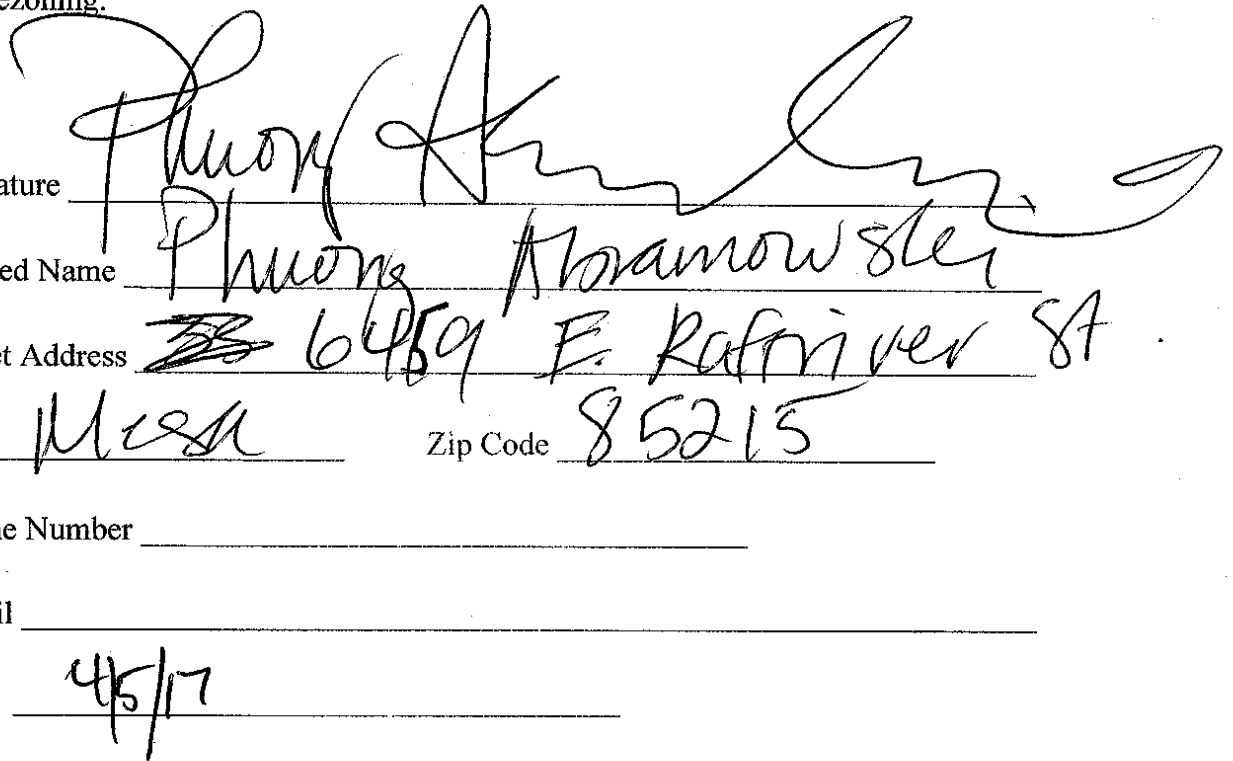 ezoning.
ature Phuong A
ed Name Phuong Abramowski
et Address 6459 E. Raftriver St.
Mesa Zip Code 85215
ne Number
il
4/5/17